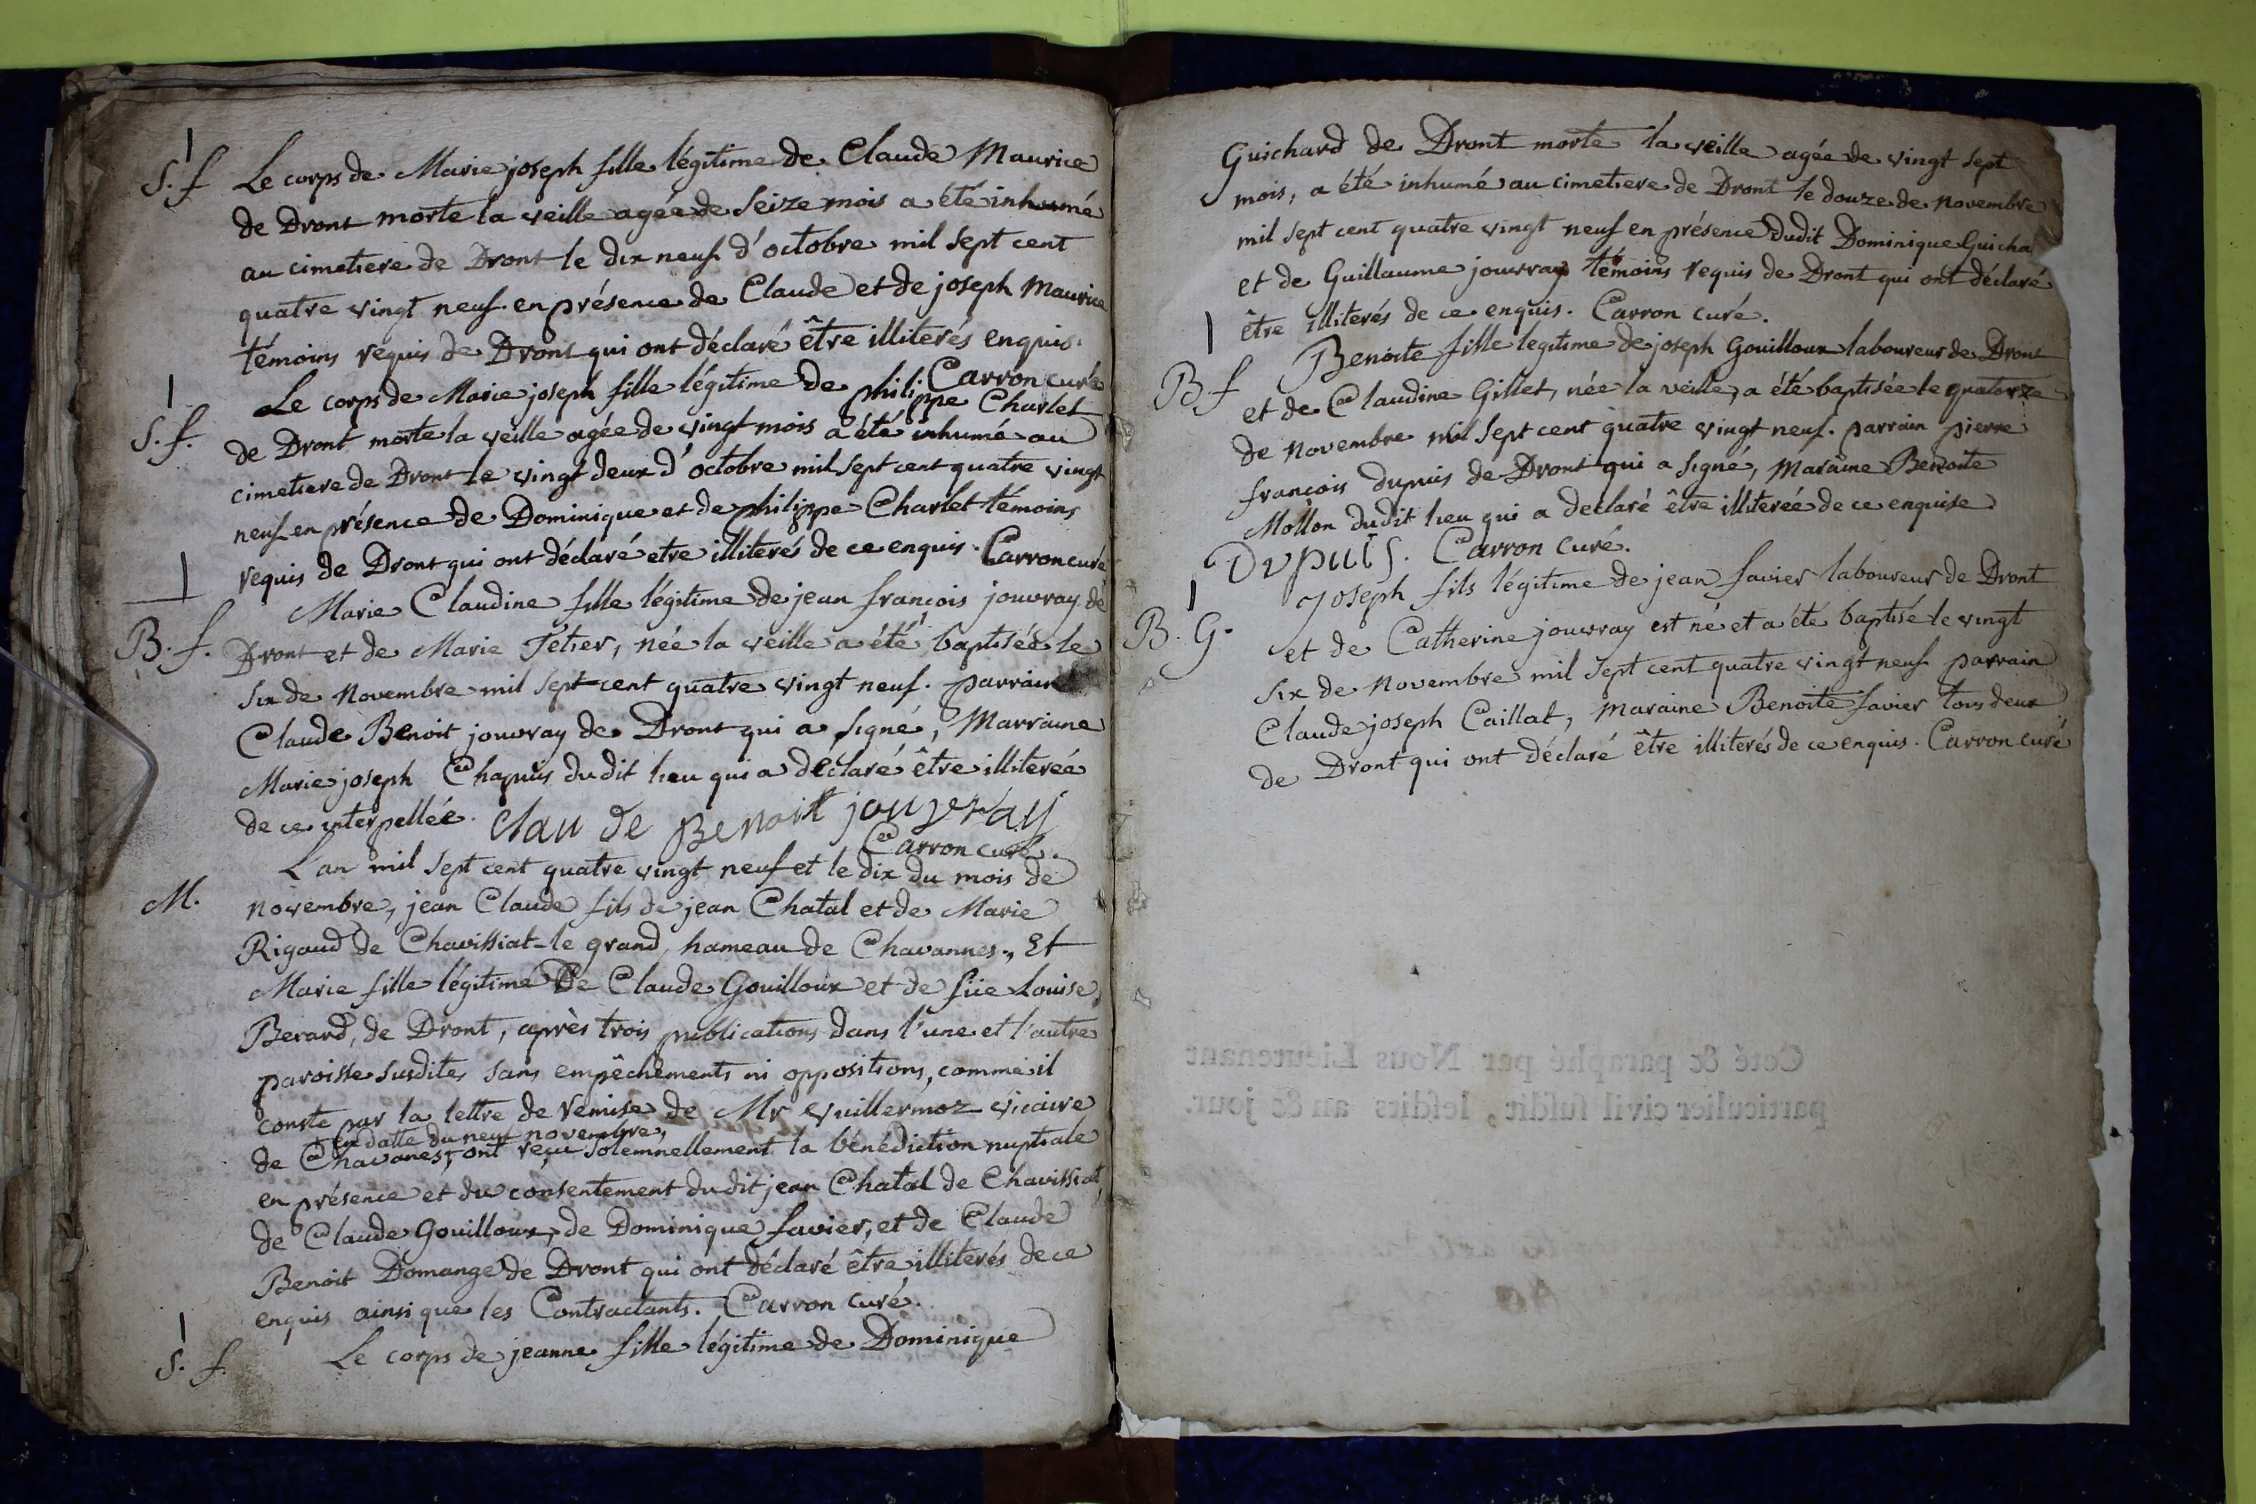 S. f
Le corps de Marie joseph fille légitime de Claude Maurice
de Dront morte la veille agée de seize mois a été inhumé
au cimetiere de Dront le dix neuf d'octobre mil sept cent
quatre vingt neuf en présence de Claude et de joseph Maurice
témoins requis de Dront qui ont déclaré être illiterés enquis.
Carron curé
S. f.
Le corps de Marie joseph fille légitime de philippe Charlet
de Dront morte la veille agée de vingt mois a été inhumé au
cimetiere de Dront le vingt deux d'octobre mil sept cent quatre vingt
neuf en présence de Dominique et de philippe Charlet témoins
requis de Dront qui ont déclaré etre illiterés de ce enquis. Carron curé
B. f.
Marie Claudine fille légitime de jean françois jouvray de
Dront et de Marie Tétier, née la veille a été baptisée le
six de Novembre mil sept cent quatre vingt neuf. parrain
Claude Benoit jouvray de Dront qui a signé, Marraine
Marie joseph Chapuis dudit lieu qui a déclaré être illiterée
de ce interpellée. Clau de Benoit jouvray
Carron curé.
M.
L'an mil sept cent quatre vingt neuf et le dix du mois de
novembre, jean Claude fils de jean Chatal et de Marie
Rigaud de Chavissiat-le grand, hameau de Chavannes., Et
Marie fille légitime de Claude Gouilloux et de füe Louise
Berard, de Dront, après trois publications dans l'une et l'autre
paroisse susdites sans empêchements ni oppositions, comme il
conste par la lettre de remise de Mr Vuillermoz vicaire
en datte du neuf novembre,
de Chavanes, ont reçu solemnellement la bénédiction nuptiale
en présence et du consentement dudit jean Chatal de Chavissiat
de Claude Gouilloux, de Dominique favier, et de Claude
Benoit Domange de Dront qui ont déclaré être illiterés de ce
enquis ainsi que les Contractants. Carron curé.
S. f.
Le corps de jeanne fille légitime de Dominique
Guichard de Dront morte la veille agée de vingt sept
mois, a été inhumé au cimetiere de Dront le douze de novembre
mil sept cent quatre vingt neuf en présence dudit Dominique Guicha
et de Guillaume jouvray témoins requis de Dront qui ont déclaré
être illiterés de ce enquis. Carron curé.
B f
Benoite fille legitime de joseph Gouilloux laboureur de Dront
et de Claudine Gillet, née la veille, a été baptisée le quatorze
de novembre mil sept cent quatre vingt neuf. parrain pierre
françois dupuis de Dront qui a signé, Maraine Benoite
Mollon dudit lieu qui a declaré être illiterée de ce enquise
Dupuis. Carron curé.
B. G.
Joseph fils légitime de jean favier laboureur de Dront
et de Catherine jouvray est né et a été baptisé le vingt
six de novembre mil sept cent quatre vingt neuf parrain
Claude joseph Caillat, maraine Benoite favier tous deux
de Dront qui ont déclaré être illiterés de ce enquis. Carron curé
Coté & paraphé par Nous Lieutenant
particulier civil susdit, lesdits an & jour.